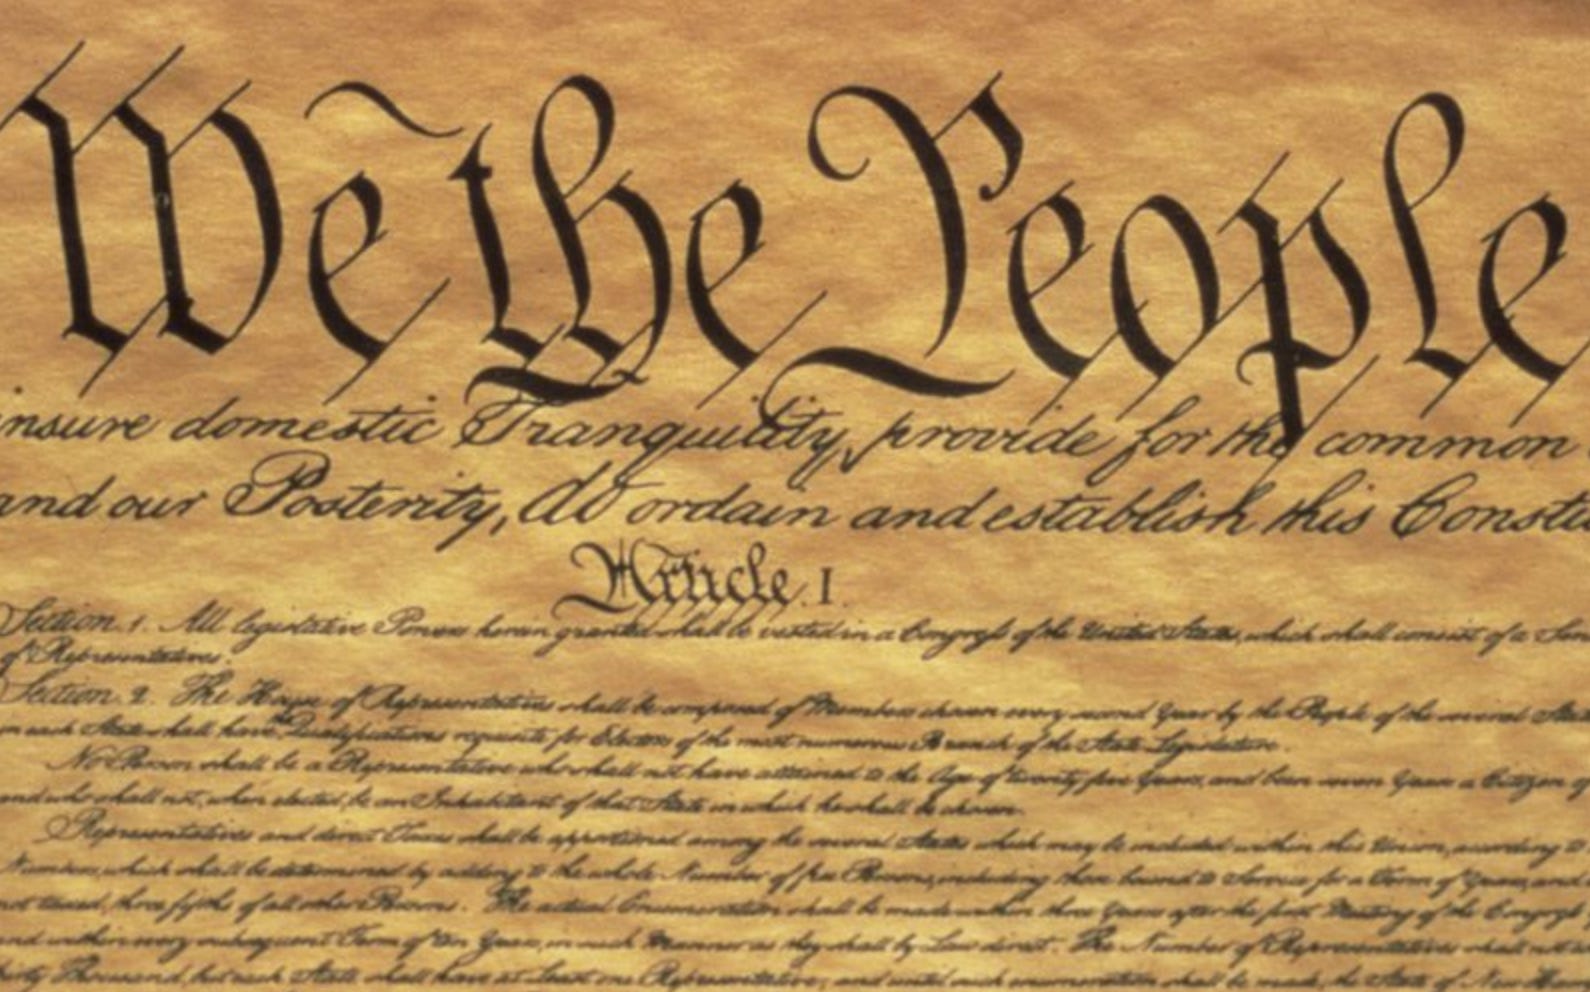 We the People
insure domestic Tranquility, provide for the common
and our Posterity, do ordain and establish this Constitu
Article. I.
Section. 1. All legislative Powers herein granted shall be vested in a Congress of the United States, which shall consist of a Sen
of Representatives.
Section. 2. The House of Representatives shall be composed of Members chosen every second Year by the People of the several Stat
in each State shall have the Qualifications requisite for Electors of the most numerous Branch of the State Legislature.
No Person shall be a Representative who shall not have attained to the Age of twenty five Years, and been seven Years a Citizen of
and who shall not, when elected, be an Inhabitant of that State in which he shall be chosen.
Representatives and direct Taxes shall be apportioned among the several States which may be included within this Union, according to
Numbers, which shall be determined by adding to the whole Number of free Persons, including those bound to Service for a Term of Years, and
not taxed, three fifths of all other Persons. The actual Enumeration shall be made within three Years after the first Meeting of the Congress
and within every subsequent Term of ten Years, in such Manner as they shall by Law direct. The Number of Representatives shall not
thirty Thousand, but each State shall have at Least one Representative; and until such enumeration shall be made, the State of New Ham